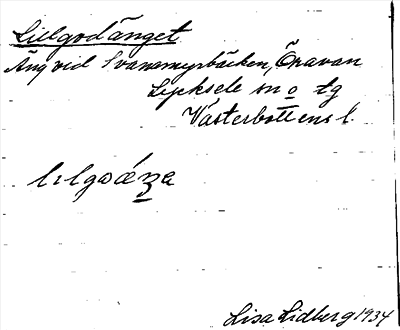 Lillgodänget
Äng vid Svanamyrbäcken, Önavan
Lycksele sn o tg
Västerbottens l.
Lisa Lidberg 1934